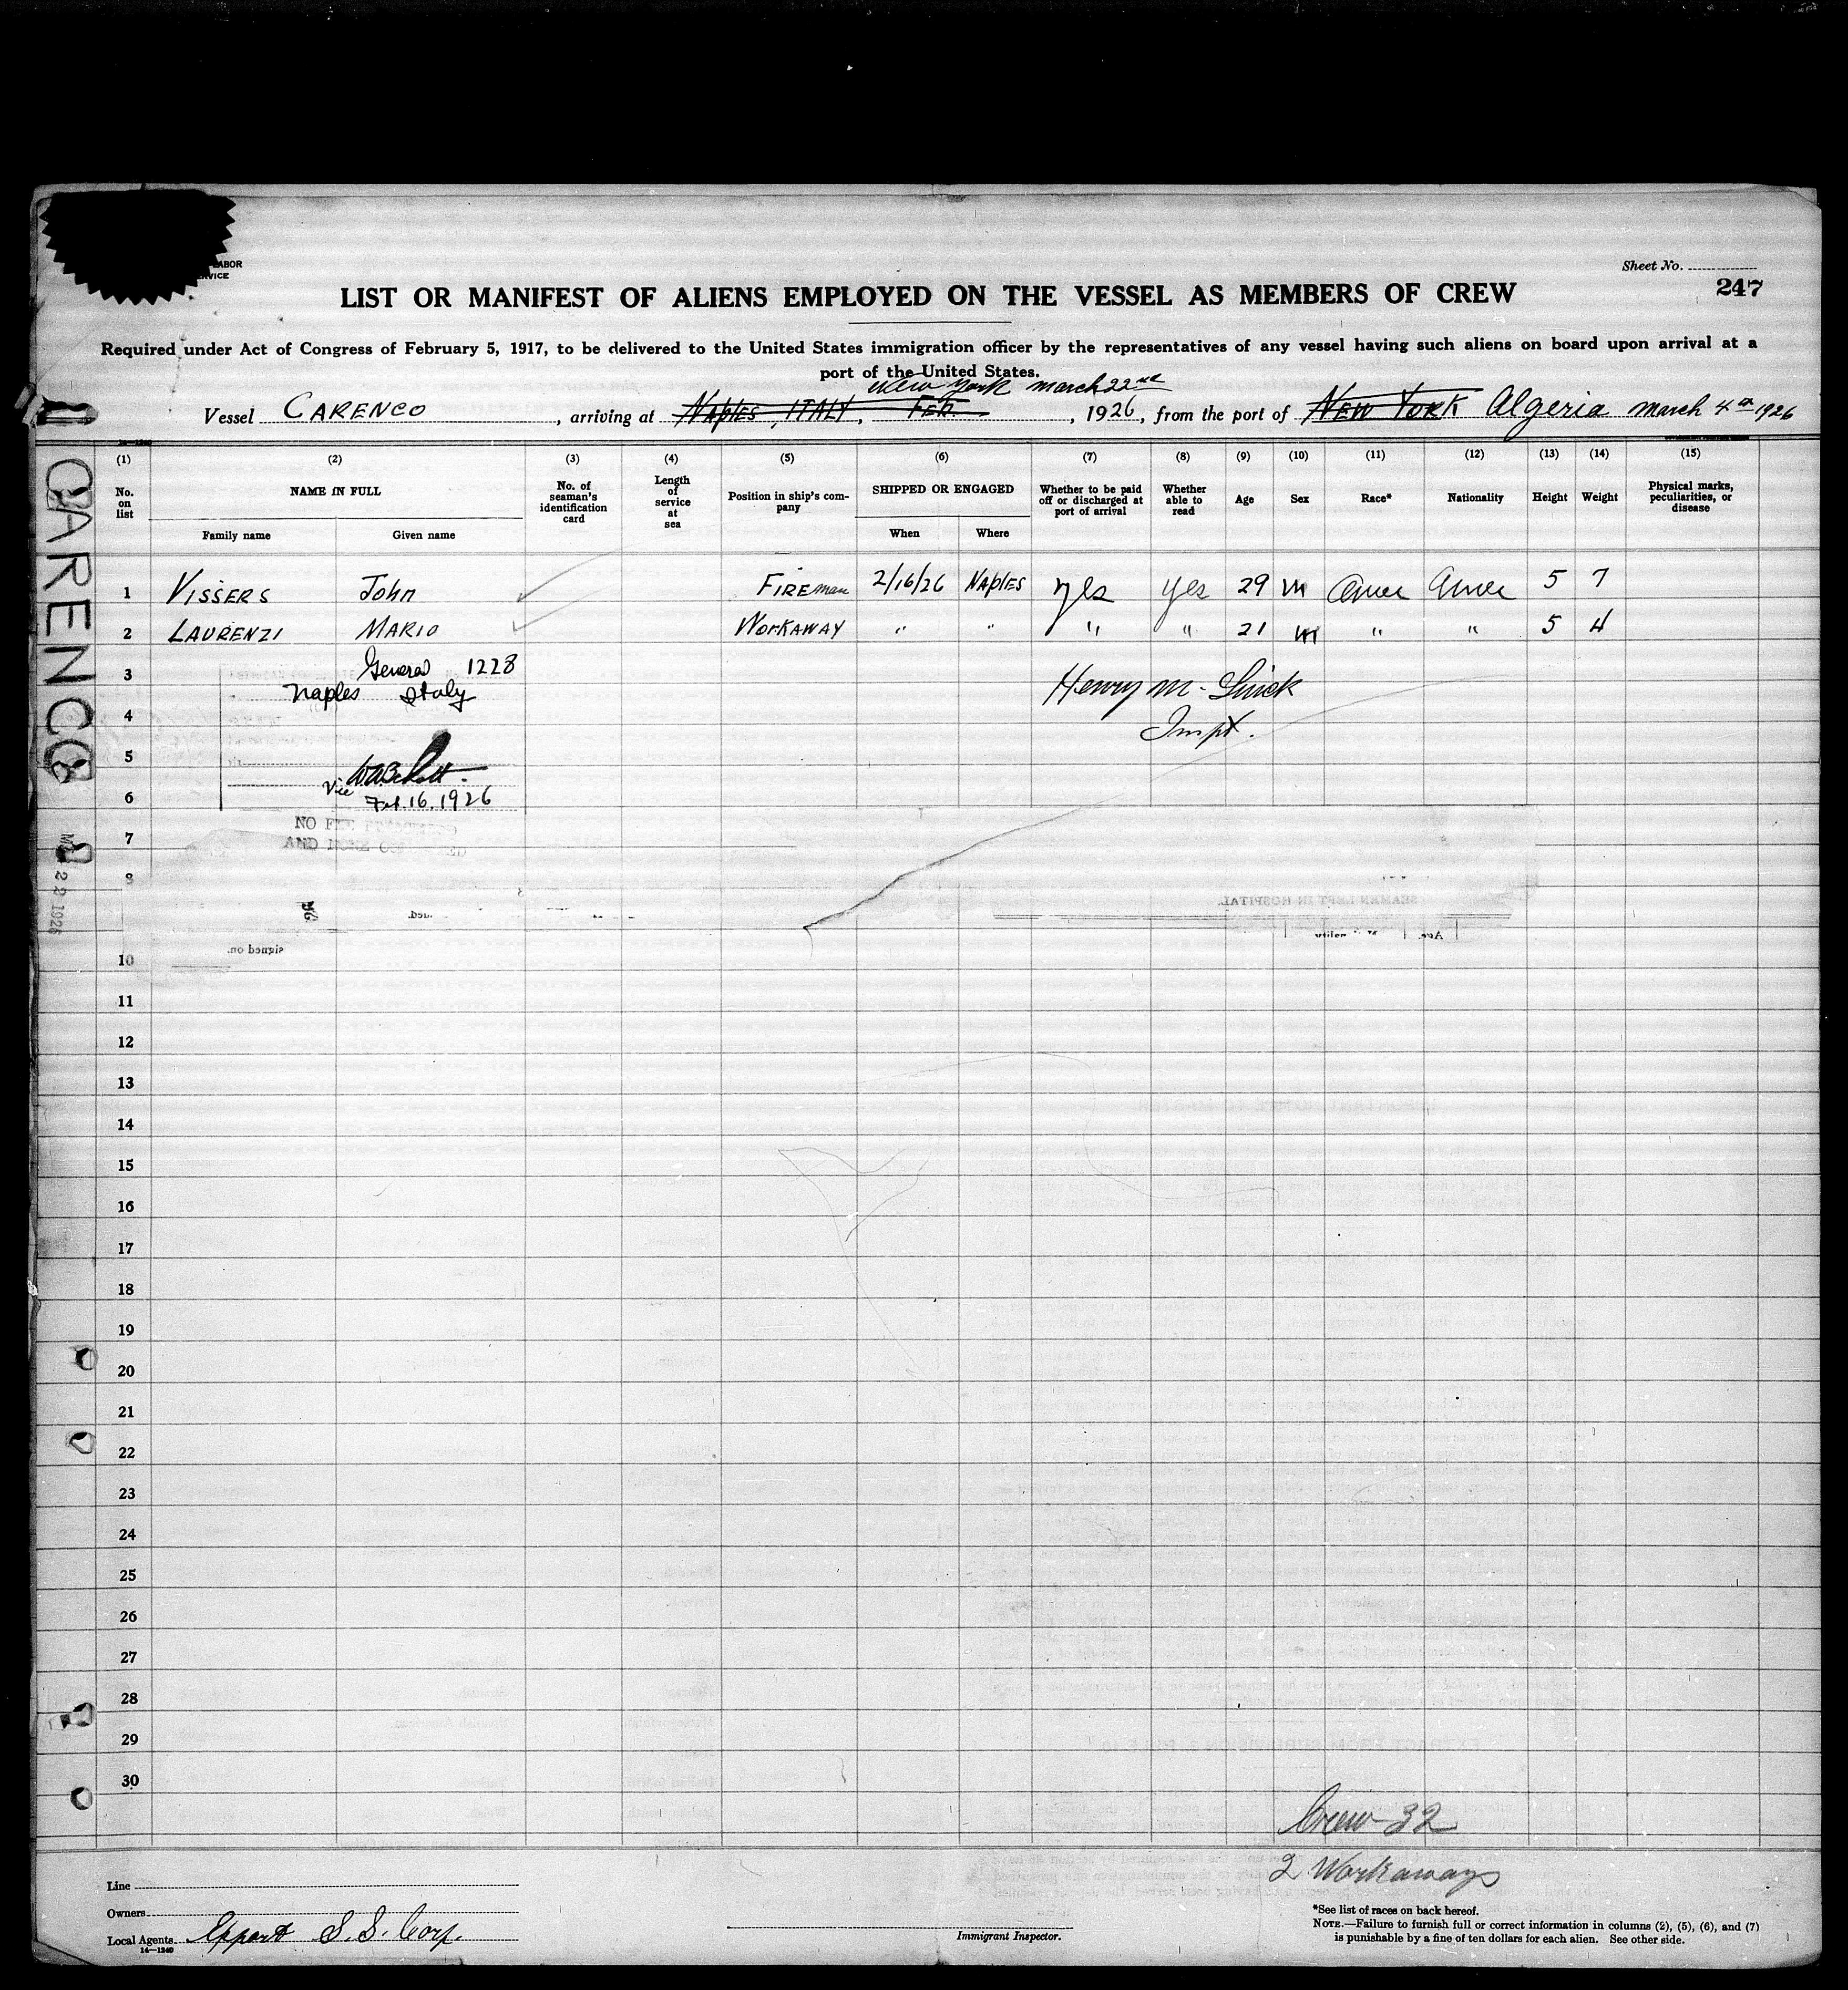 LABOR
Sheet No.
247
LIST OR MANIFEST OF ALIENS EMPLOYED ON THE VESSEL AS MEMBERS OF CREW
Required under Act of Congress of February 5, 1917, to be delivered to the United States immigration officer by the representatives of any vessel having such aliens on board upon arrival at a
port of the United States.
New York march 22nd
Vessel CARENCO, arriving at Naples, ITALY, FEB. , 1926, from the port of NEW YORK Algeria march 4th 1926
(1) (2) (3) (4) (5) (6) (7) (8) (9) (10) (11) (12) (13) (14) (15)
No. on list NAME IN FULL No. of seaman's identification card Length of service at sea Position in ship's company SHIPPED OR ENGAGED Whether to be paid off or discharged at port of arrival Whether able to read Age Sex Race* Nationality Height Weight Physical marks, peculiarities, or disease
Family name Given name When Where
1 VISSERS John FIREman 2/16/26 NAPLES yes yes 29 m Amer Amer 5 7
2 LAURENZI MARIO WORKAWAY " " " " 21 m " " 5 4
3 General 1228
Naples Italy
Henry M.
4 Inspt.
5
Vice
6 Feb. 16. 1926
NO FEE
7 AND NONE
8
signed on.
SEAMEN LEFT IN HOSPITAL.
10
11
12
13
14
15
16
17
18
19
20
21
22
23
24
25
26
27
28
29
30
CARENCO
22 1926
Crew-32
2 Workaways
Line
Owners
Local Agents Export S.S. Corp.
14—1240
Immigrant Inspector.
*See list of races on back hereof.
NOTE.—Failure to furnish full or correct information in columns (2), (5), (6), and (7)
is punishable by a fine of ten dollars for each alien. See other side.